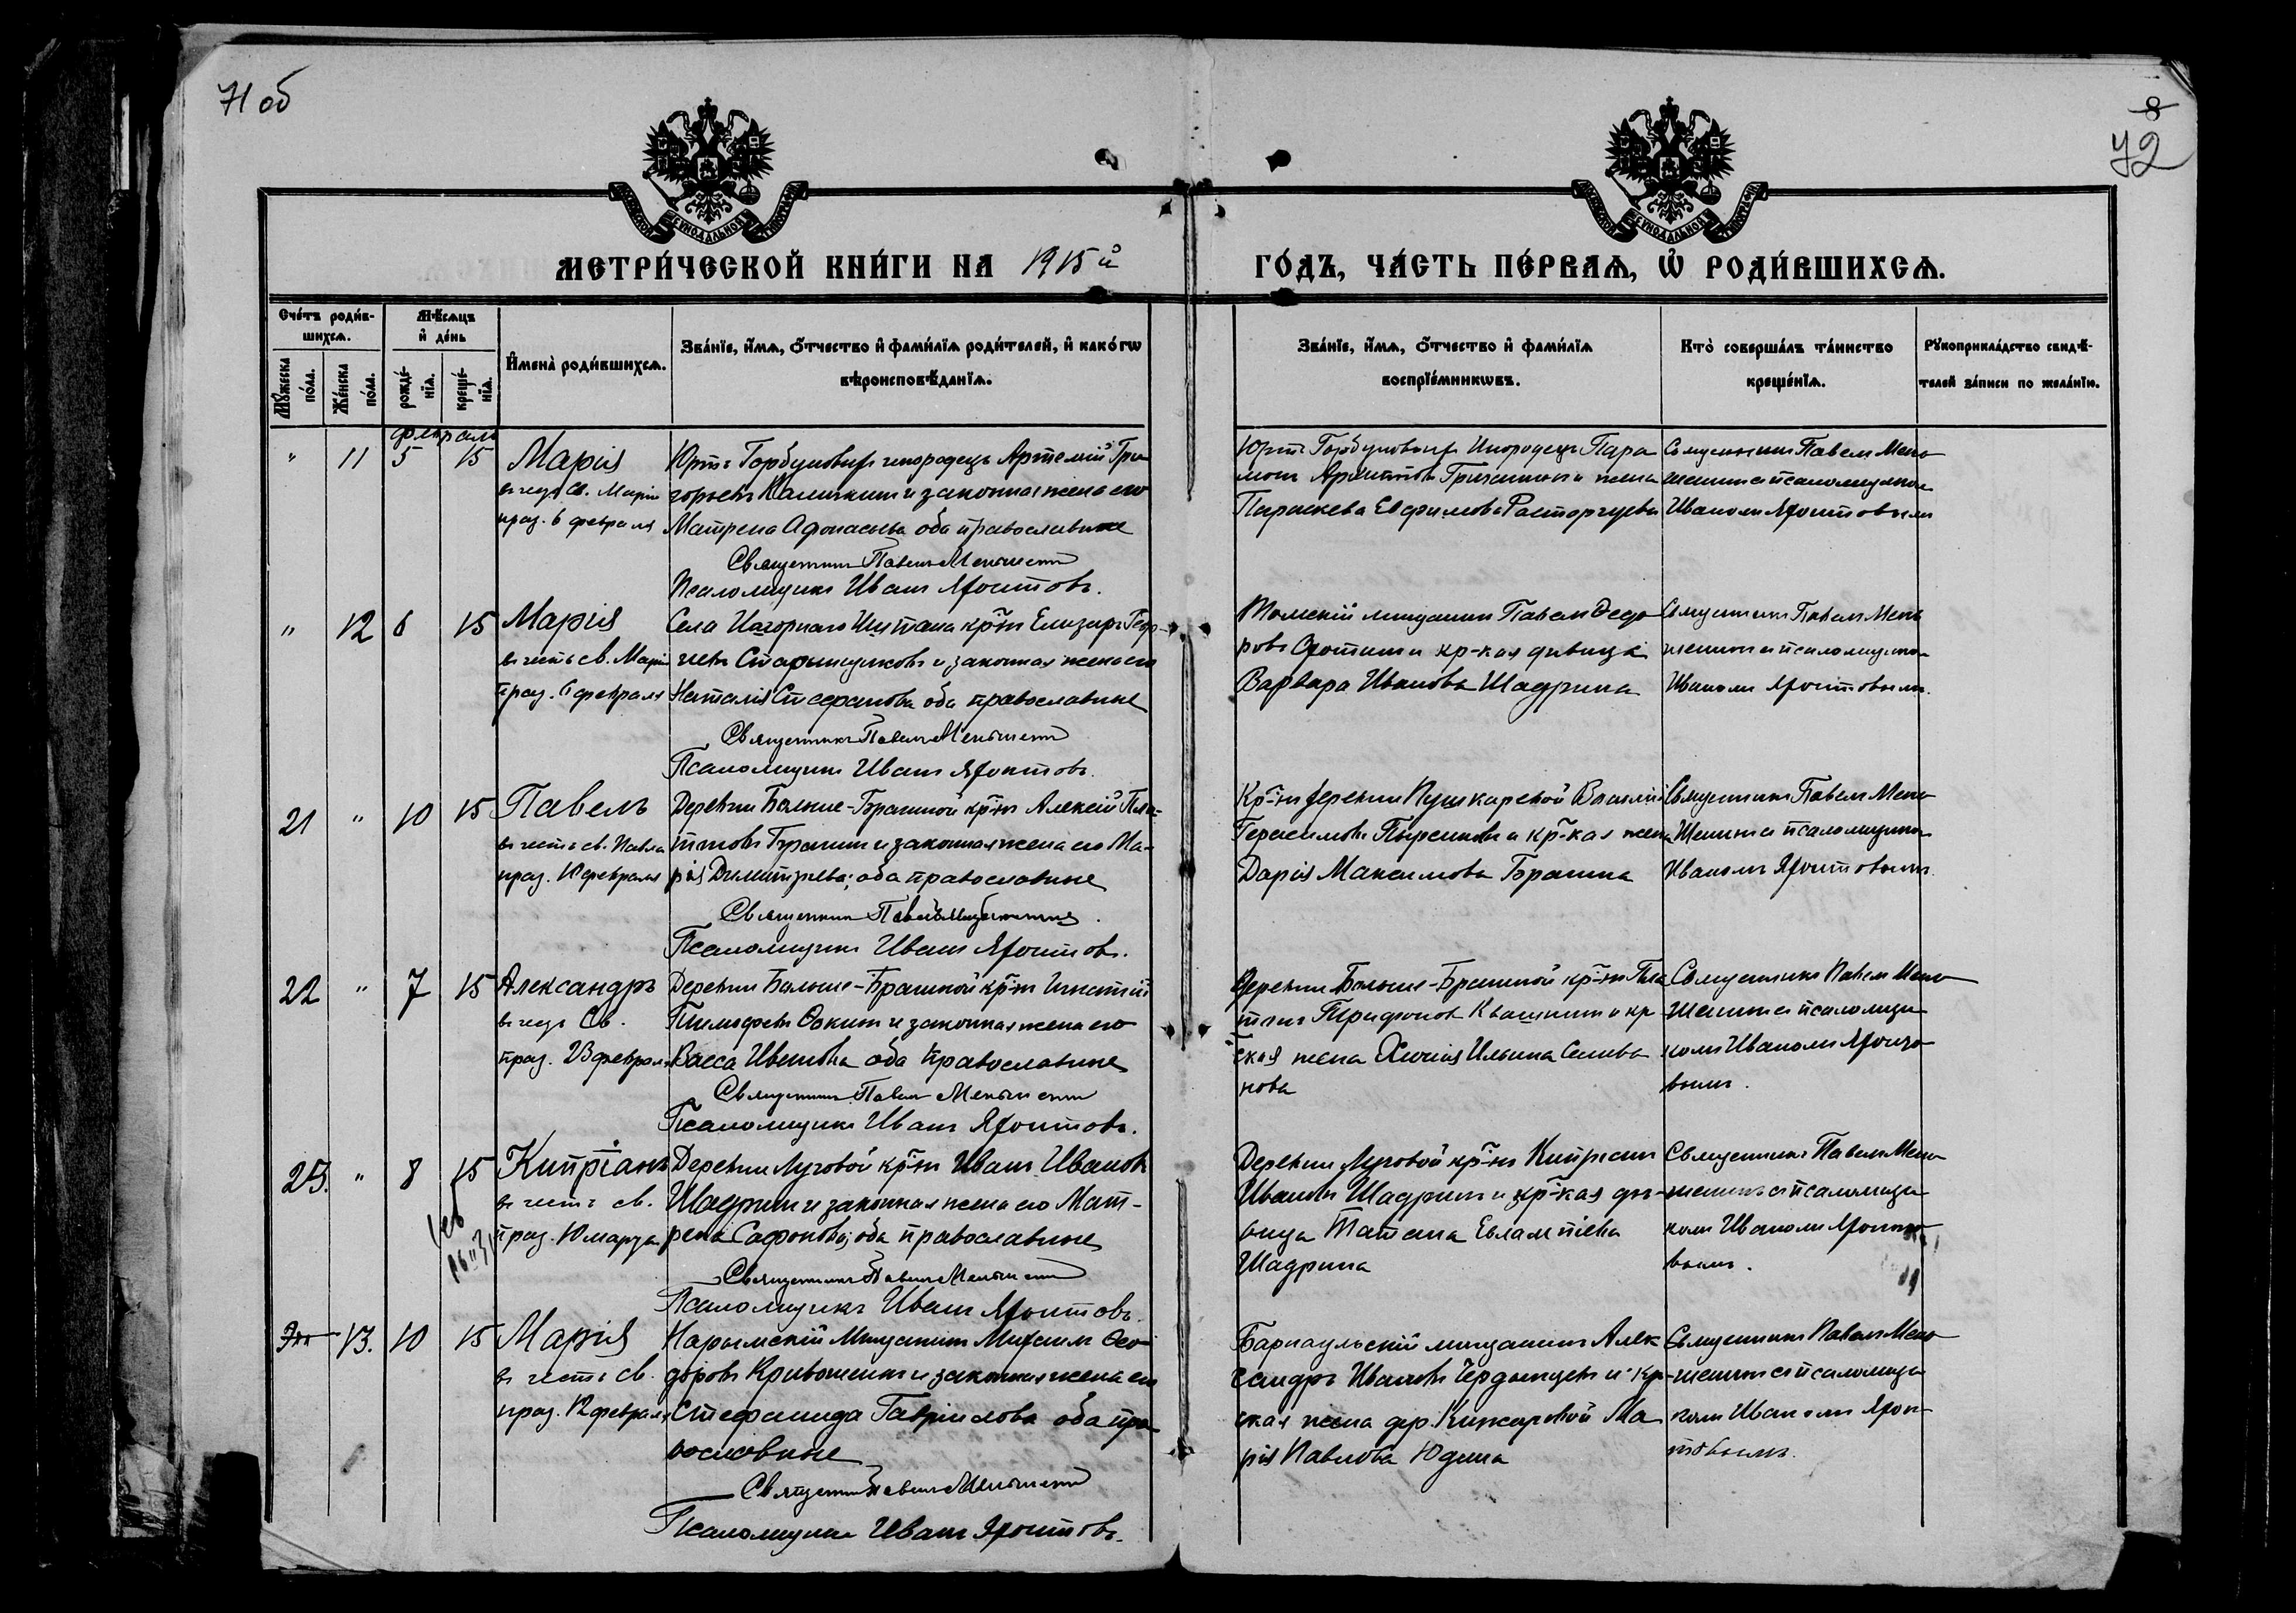 71 об
8
72
МЕТРИ́ЧЕСКОЙ КНИ́ГИ НА 1915й
ГО́ДЪ, ЧА́СТЬ ПЕ́РВАѦ, Ѡ҆ РОДИ́ВШИХСѦ.
Сче́тъ роди́в-
шихсѧ.
Мꙋ́жеска по́ла.
Же́нска по́ла.
Мѣ́сѧцъ
и҆ де́нь
рожде́-
нїѧ.
креще́-
нїѧ.
И҆мена̀ роди́вшихсѧ.
Зва́нїе, и҆́мѧ, ѻ҆́тчество и҆ фами́лїѧ роди́телей, и҆ како́гѡ
вѣроисповѣ́данїѧ.
Зва́нїе, и҆́мѧ, ѻ҆́тчество и҆ фами́лїѧ
воспрїе́мникѡвъ.
Кто̀ соверша́лъ та́инство
креще́нїѧ.
Рꙋкоприкла́дство свидѣ́-
телей за́писи по жела́нїю.
февраль
" 11 5 15 Марія
въ честь св. Маріи
праз. 6 февраля
Юртъ Горбуновыхъ инородецъ Артемій Гри-
горьевъ Калишкинъ и законная жена его
Матрена Афонасьева оба православные
Священникъ Павелъ Меньшенинъ
Псаломщикъ Иванъ Яхонтовъ.
Юртъ Горбуновыхъ Инородецъ Пара
Параскева Евфимова Расторгуева
Священникъ Павелъ Мень-
шенинъ съ псаломщикомъ
Иваномъ Яхонтовымъ
" 12 6 15 Марія
въ честь св. Маріи
праз. 6 февраля
Села кр-нъ Елизаръ Геор-
гіевъ и законная жена его
Наталія Стефанова оба православные
Священникъ Павелъ Меньшенинъ
Псаломщикъ Иванъ Яхонтовъ.
Томскій мещанинъ Павелъ Ѳедо-
ровъ и кр-кая дѣвица
Варвара Иванова Шадрина
Священникъ Павелъ Мень-
шенинъ съ псаломщикомъ
Иваномъ Яхонтовымъ.
21 " 10 15 Павелъ
въ честь св. Павла
праз. 10 февраля
Деревни Больше-Брагиной кр-нъ Алексій Пла-
тоновъ Брагинъ и законная жена его Ма-
рія Димитріева; оба православные
Священникъ Павелъ Меньшенинъ.
Псаломщикъ Иванъ Яхонтовъ.
Кр-нъ деревни Пушкаревой Василій
Герасимовъ и кр-кая жена
Дарія Максимова Брагина
Священникъ Павелъ Мень-
шенинъ съ псаломщикомъ
Иваномъ Яхонтовымъ.
22 " 7 15 Александръ
въ честь Св.
праз. 23 февраля
Деревни Больше-Брагиной кр-нъ Игнатій
Тимофеевъ и законная жена его
Васса Иванова оба православные
Священникъ Павелъ Меньшенинъ
Псаломщикъ Иванъ Яхонтовъ.
Деревни Больше-Брагиной кр-нъ Пла-
тонъ Трифоновъ Квашнинъ и кр-
ская жена Ксенія Ильина Селива-
нова
Священникъ Павелъ Мень-
шенинъ съ псаломщи-
комъ Иваномъ Яхонто-
вымъ.
23. " 8 15 Кипріанъ
въ честь св.
праз. 10 марта
Деревни Луговой кр-нъ Иванъ Ивановъ
Шадринъ и законная жена его Мат-
рена Сафонова; оба православные
Священникъ Павелъ Меньшенинъ
Псаломщикъ Иванъ Яхонтовъ.
Деревни Луговой кр-нъ Кипріанъ
Ивановъ Шадринъ и кр-кая дѣ-
вица Татіана Евлампіева
Шадрина
Священникъ Павелъ Мень-
шенинъ съ псаломщи-
комъ Иваномъ Яхонто-
вымъ.
13. 10 15 Марія
въ честь св.
праз. 12 февраля
Нарымскій Мещанинъ Михаилъ Ѳео-
доровъ Кривошеинъ и законная жена его
Стефанида Гавріилова оба пра-
вославные
Священникъ Павелъ Меньшенинъ
Псаломщикъ Иванъ Яхонтовъ.
Барнаульскій мещанинъ Алек-
сандръ Ивановъ Чердынцевъ и кр-
ская жена дер. Кижировой Ма-
рія Павлова Юдина
Священникъ Павелъ Мень-
шенинъ съ псаломщи-
комъ Иваномъ Яхон-
товымъ.